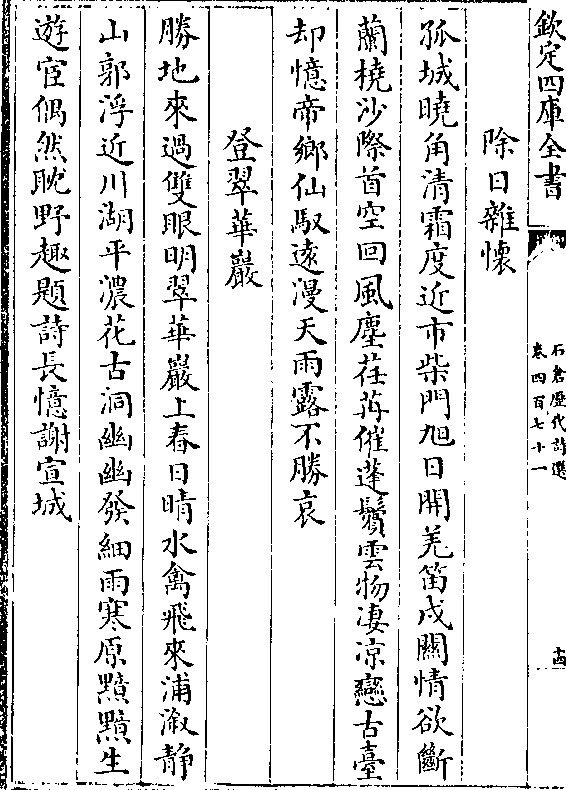 欽定四庫全書
石倉歷代詩選
卷四百七十一
十四
除日雜懷
孤城曉角清霜度近市柴門旭日開羌笛戍關情欲斷
蘭橈沙際首空回風塵荏苒催蓬鬢雲物凄凉戀古臺
却憶帝鄉仙馭遠漫天雨露不勝哀
登翠華巖
勝地來過雙眼明翠華巖上春日晴水禽飛來浦溆靜
山郭浮近川湖平濃花古洞幽幽發細雨寒原黯黯生
遊宦偶然耽野趣題詩長憶謝宣城